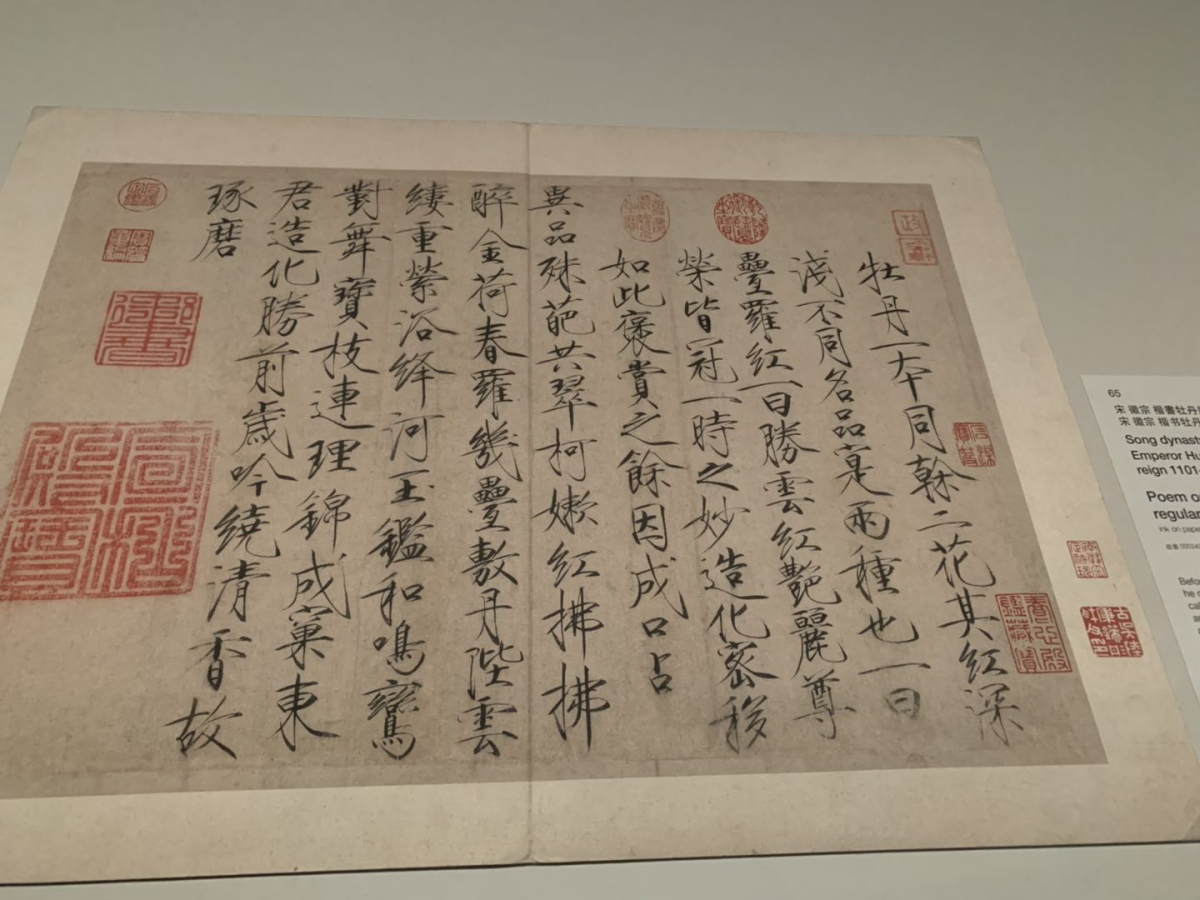 牡丹一本同榦二花其紅深
淺不同名品寔兩種也一曰
疊羅紅一曰勝雲紅艷麗尊
榮皆冠一時之妙造化密移
如此褒賞之餘因成口占
異品殊葩共翠柯嫩紅拂拂
醉金荷春羅幾疊敷丹陛雲
縷重縈浴絳河玉鑑和鳴鸞
對舞寶枝連理錦成窠東
君造化勝前歲吟繞清香故
琢磨
65
宋 徽宗 楷書牡丹
宋 徽宗 楷书牡丹
Song dynast
Emperor Hu
reign 1101
Poem o
regular
ink on pape